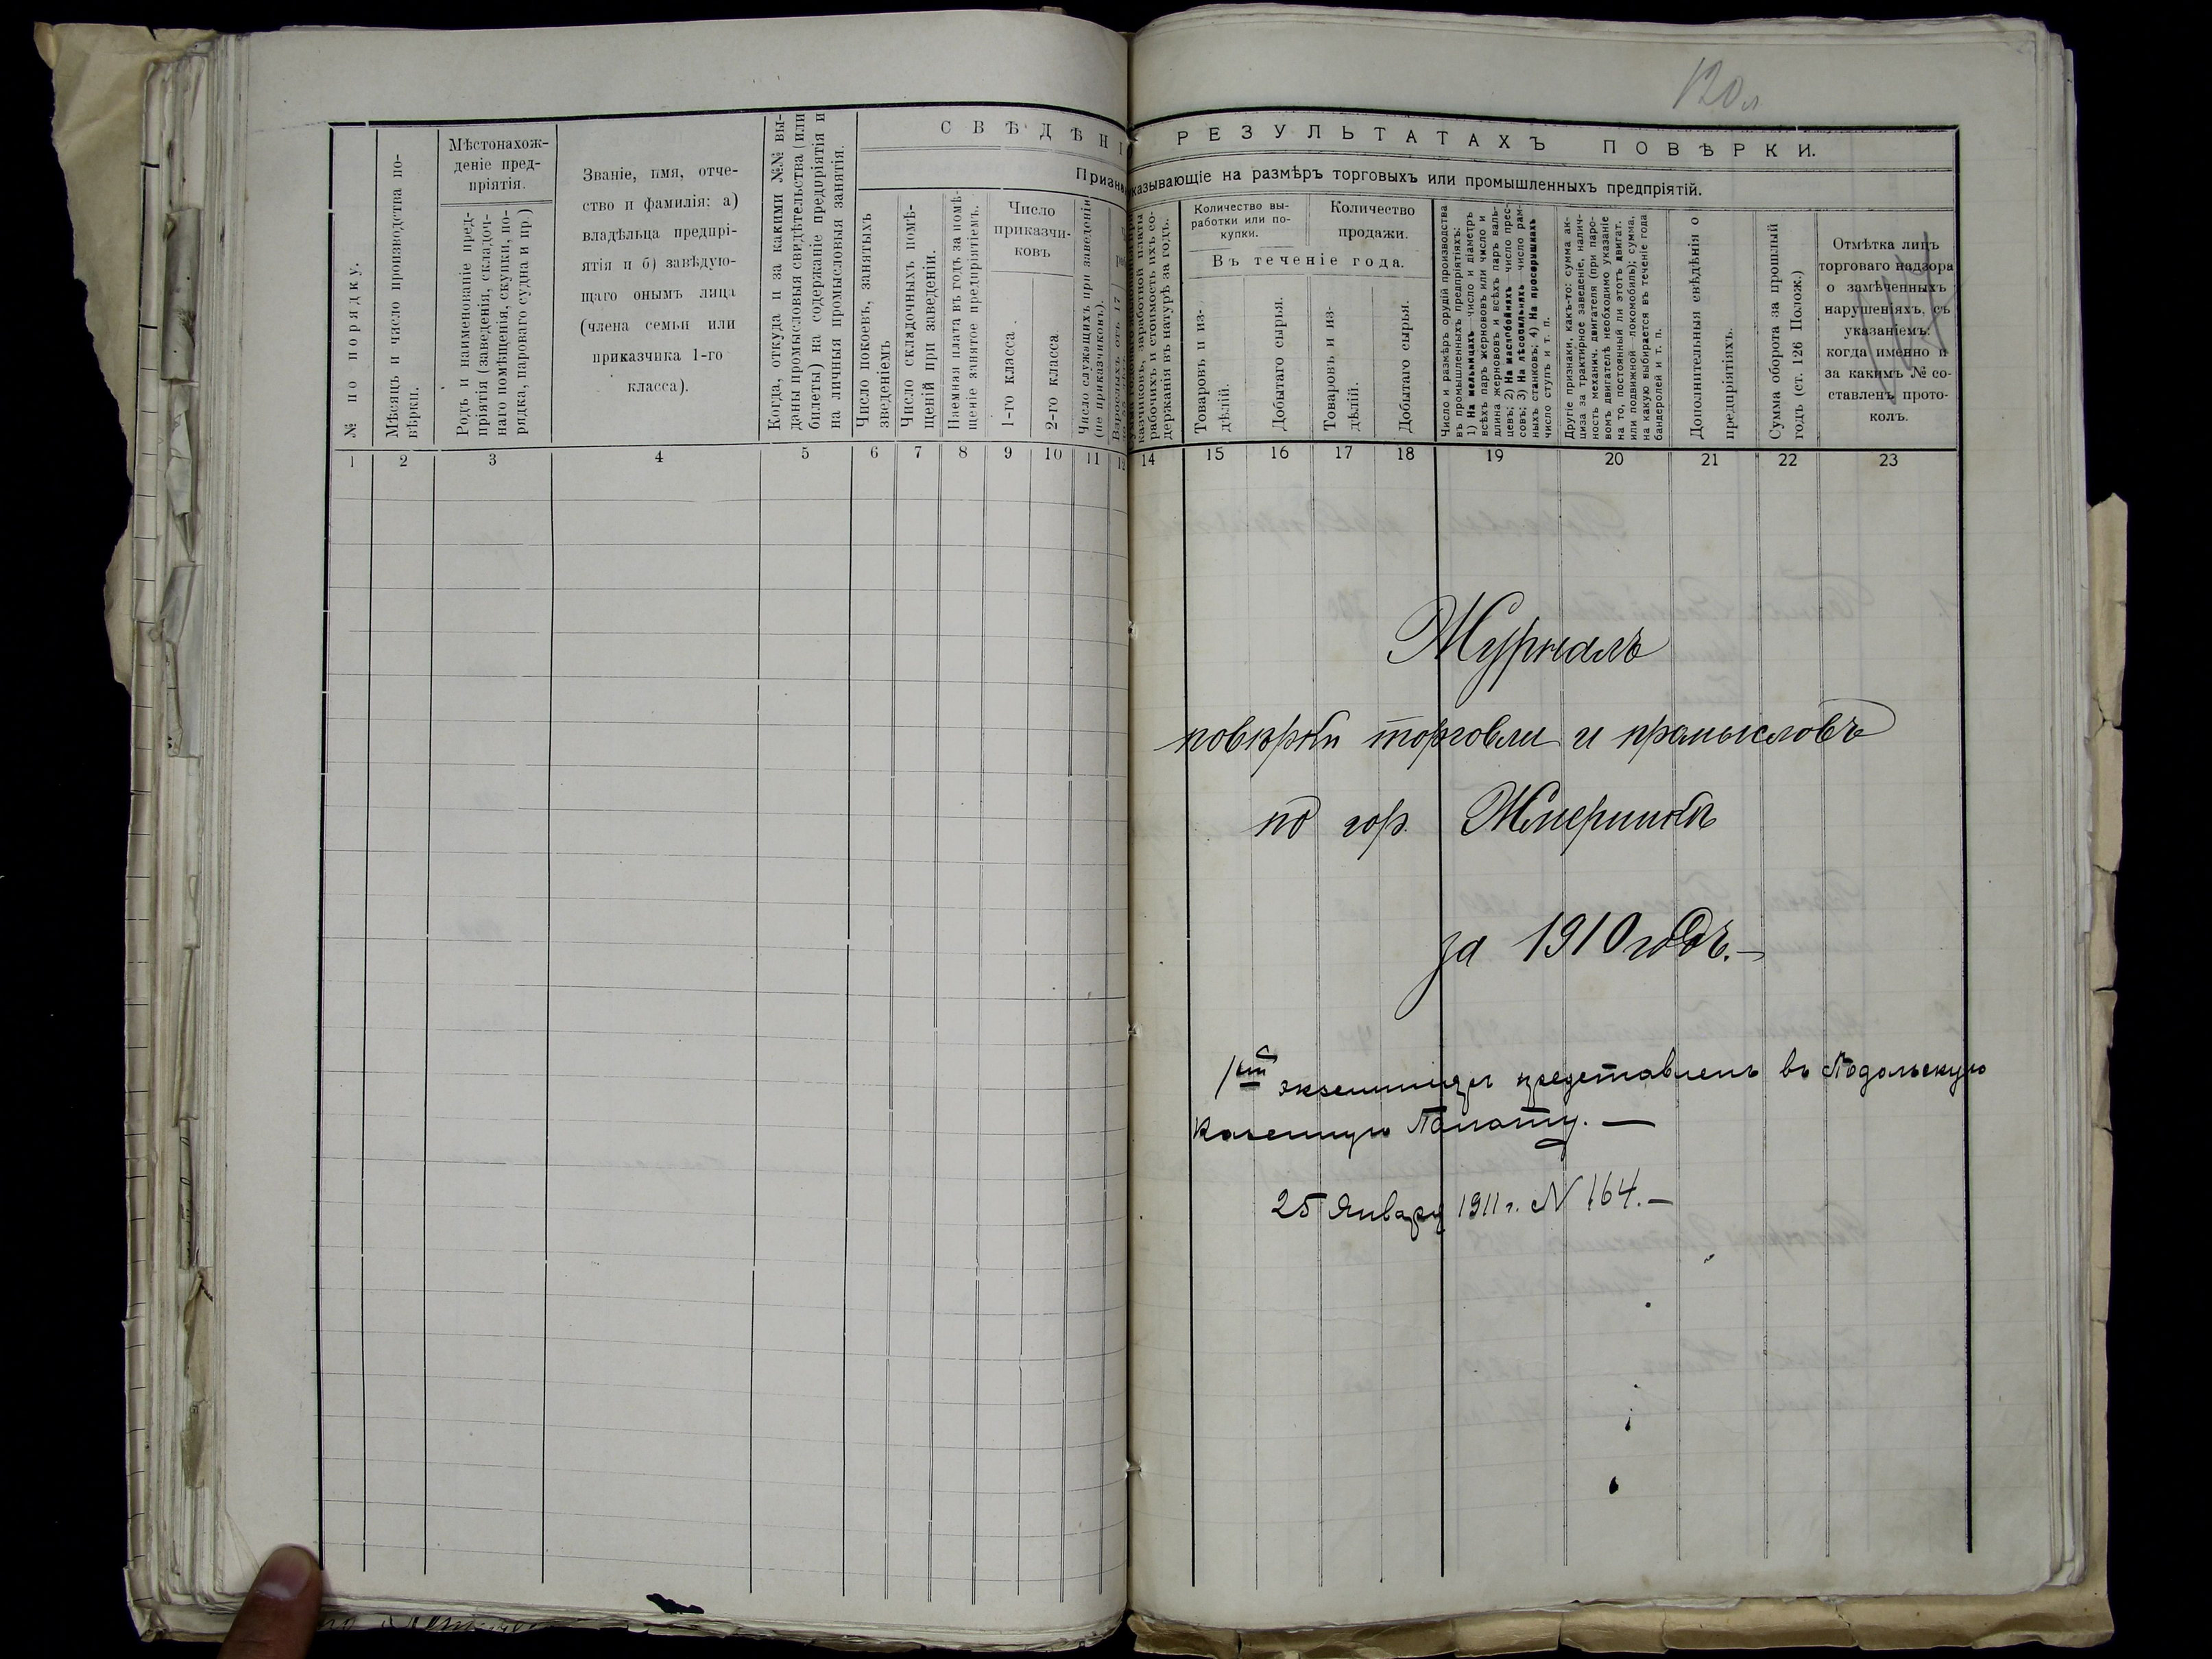 120
СВѢДѢНІ
РЕЗУЛЬТАТАХЪ ПОВѢРКИ.
Призна
казывающіе на размѣръ торговыхъ или промышленныхъ предпріятій.
№ по порядку.
Мѣсяцъ и число производства по-
вѣрки.
Мѣстонахож-
деніе пред-
пріятія.
Родъ и наименованіе пред-
пріятія (заведенія, складоч-
наго помѣщенія, скупки, по-
рядка, парового судна и пр.)
Званіе, имя, отче-
ство и фамилія: а)
владѣльца предпрі-
ятія и б) завѣдую-
щаго онымъ лица
(члена семьи или
приказчика 1-го
класса).
Когда, откуда и за какими №№ вы-
даны промысловыя свидѣтельства (или
билеты) на содержаніе предпріятія и
на личныя промысловыя занятія.
Число покоевъ, занятыхъ
зведеніемъ
Число складочныхъ помѣ-
щеній при заведеніи.
Наемная плата въ годъ за помѣ-
щеніе занятое предпріятіемъ.
Число
приказчи-
ковъ
1-го класса
2-го класса
Число служащихъ при заведеніи
(не приказчиковъ).
Взрослыхъ отъ 17
казчиковъ, заработной платы
рабочихъ и стоимость ихъ со-
держанія въ натурѣ за годъ.
Количество вы-
работки или по-
купки.
Количество
продажи.
Въ теченіе года.
Товаровъ и из-
дѣлій.
Добытаго сырья.
Товаровъ и из-
дѣлій.
Добытаго сырья.
Число и размѣръ орудій производства
въ промышленныхъ предпріятіяхъ:
1) На мельницахъ—число и діаметръ
всѣхъ паръ жернововъ или число и
длина жернововъ и всѣхъ паръ валь-
цевъ; 2) На маслобойняхъ—число прес-
совъ; 3) На лѣсопильняхъ—число рам-
ныхъ станковъ; 4) На просорушкахъ
число ступъ и т. п.
Другіе признаки, какъ-то: сумма ак-
циза за трактирное заведеніе, налич-
ность механич. двигателя (при паро-
вомъ двигателѣ необходимо указаніе
на то, постоянный ли этотъ двигат.
или подвижной—локомобиль); сумма,
на какую выбирается въ теченіе года
бандеролей и т. п.
Дополнительныя свѣдѣнія о
предпріятіяхъ.
Сумма оборота за прошлый
годъ (ст. 126 Полож.)
Отмѣтка лицъ
торговаго надзора
о замѣченныхъ
нарушеніяхъ, съ
указаніемъ:
когда именно и
за какимъ № со-
ставленъ прото-
колъ.
1 2 3 4 5 6 7 8 9 10 11 12 14 15 16 17 18 19 20 21 22 23
Журналъ
повѣрки торговли и промысловъ
по гор. Жмеринкѣ
за 1910 годъ.—
1ый экземпляръ представленъ въ Подольскую
Казенную Палату.—
25 Января 1911 г. N 164.—